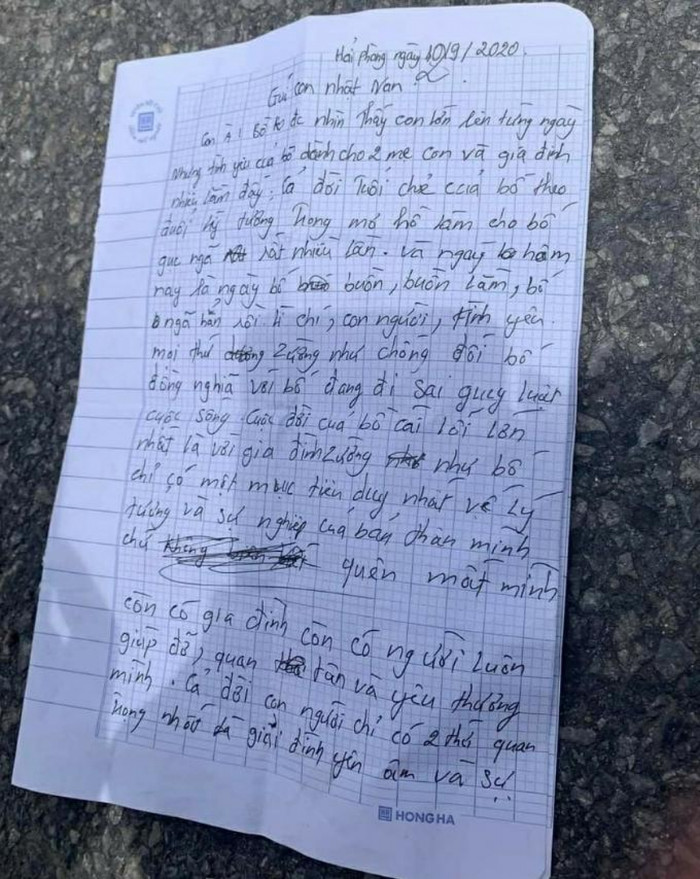 Hải phòng ngày 10/9/2020.
Gửi con nhật Nam
Con à! Bố ko đc nhìn thấy con lớn lên từng ngày
Nhưng tình yêu của bố dành cho 2 mẹ con và gia đình
nhiều lắm đấy. Cả đời tuổi chẻ của bố theo
đuổi lý tưởng trong mơ hồ làm cho bố
gục ngã rất nhiều lần. và ngay hôm
nay là ngày bố buồn, buồn lắm, bố
ngã hẳn rồi lí chí, con người, tình yêu.
mọi thứ zường như chống đối bố
đồng nghĩa với bố đang đi sai quy luật
cuộc sống. Cuộc đời của bố cái lối lớn
nhất là với gia đình zường như bố
chỉ có một mục tiêu duy nhất về lý
tưởng và sự nghiệp của bản thân mình
chứ quên mất mình
còn có gia đình còn có người luôn
giúp đỡ, quan tân và yêu thương
mình. Cả đời con người chỉ có 2 thứ quan
trong nhất là giải đình yên âm và sự
HONG HA